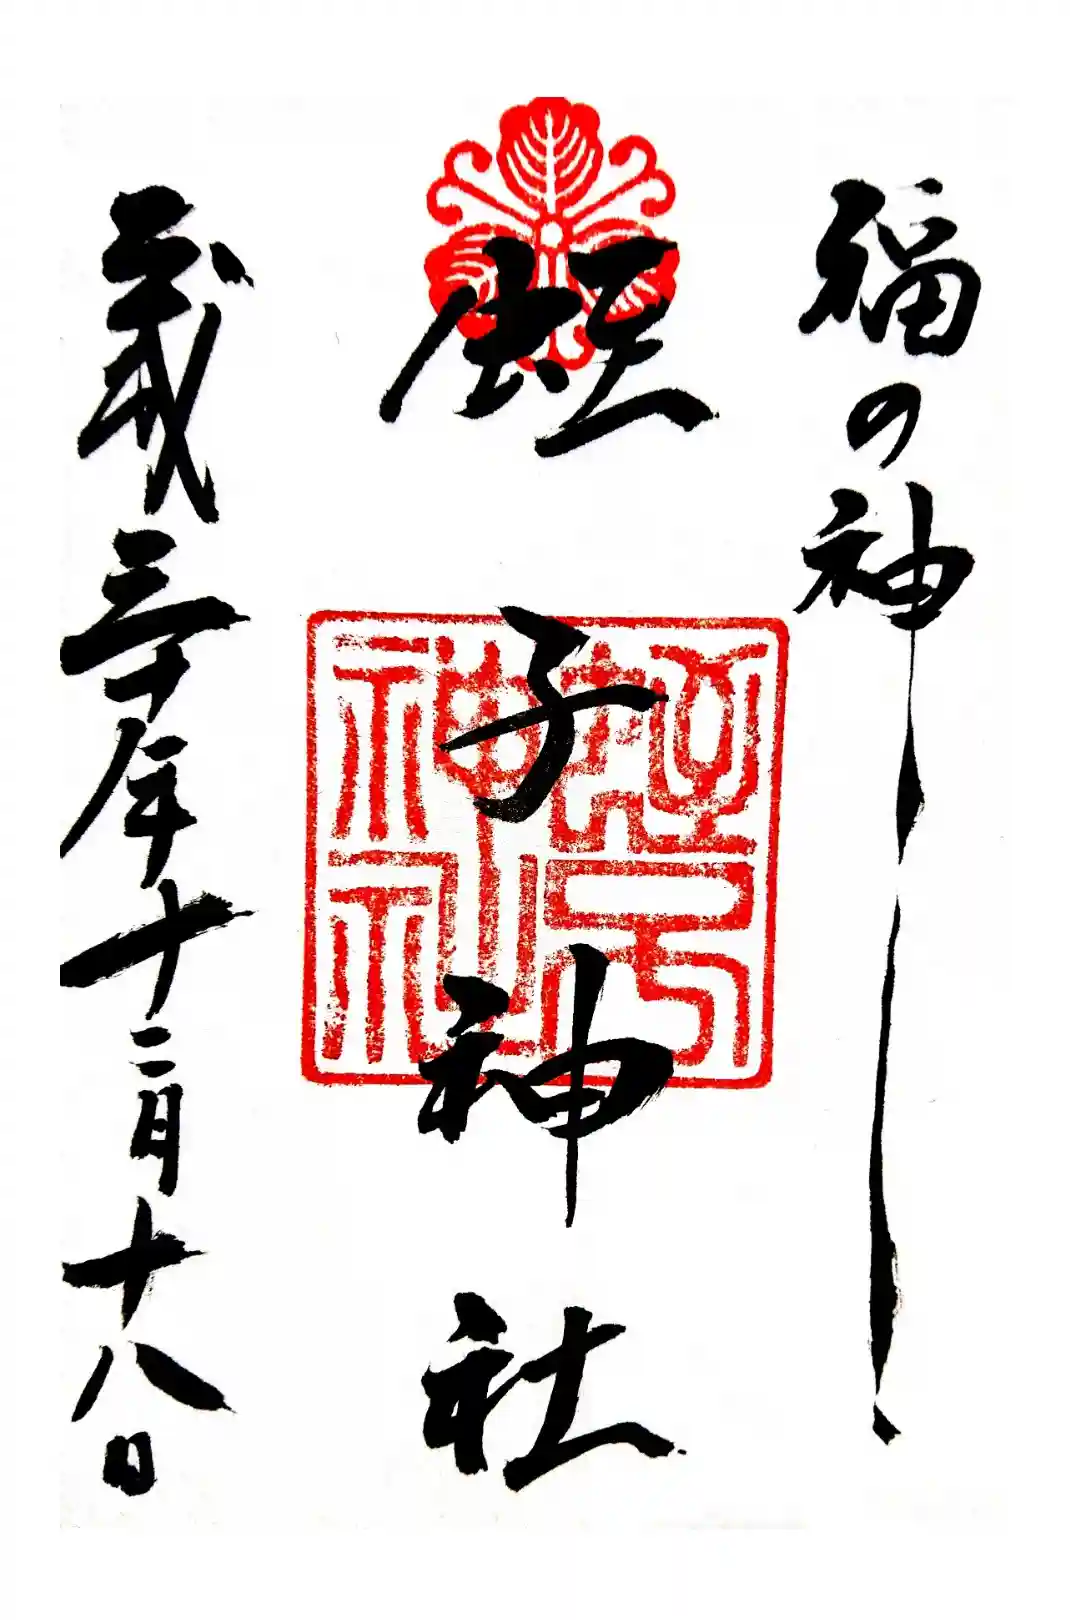 福の神
蛭子神社
平成三十年十二月十八日
蛭子
神社